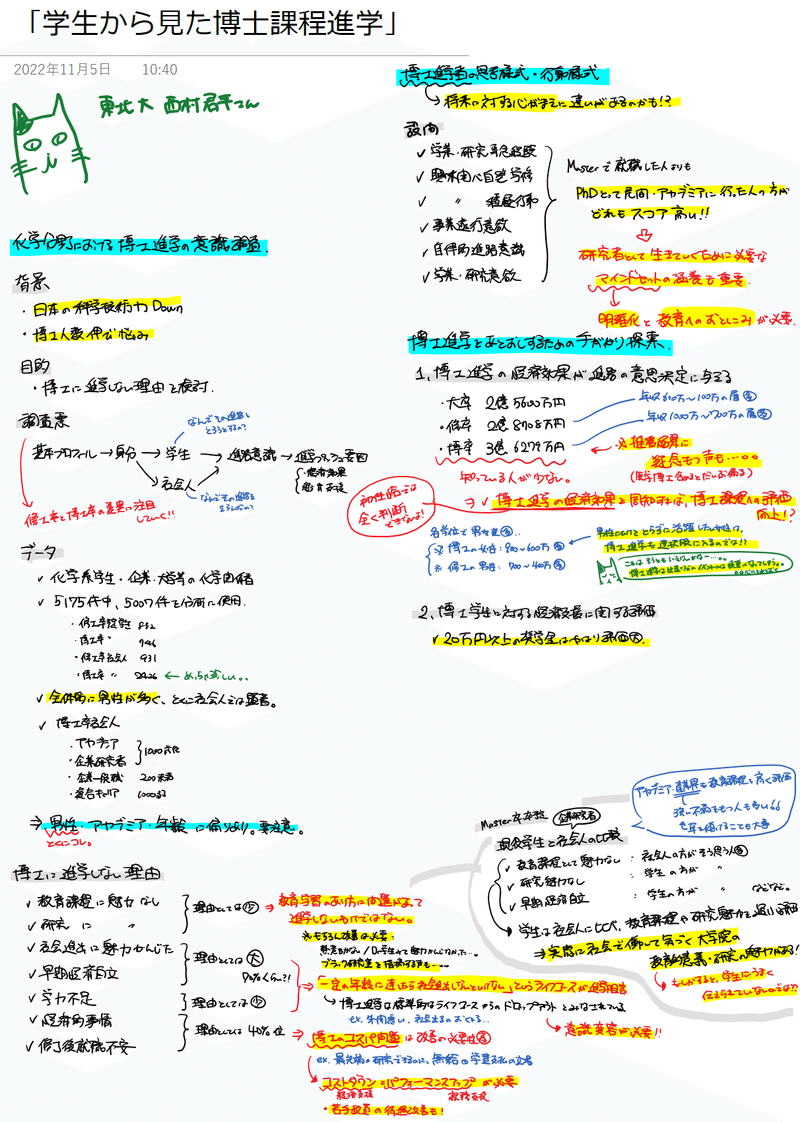 「学生から見た博士課程進学」
2022年11月5日 10:40
東北大 西村君平さん
化学分野における博士進学の意識調査
背景
・日本の科学技術力Down
・博士人数伸び悩み
目的
・博士に進学しない理由を検討.
調査票
基本プロフィール→身分→学生→進路意識→進学プッシュ要因
社会人
なんでその進路をとろうとするの?
・経済効果
・経済支援
修士卒と博士卒の差異に注目していく!!
データ
✓ 化学系学生・企業・大学等の化学関係者
✓ 5175件中、5007件を分析に使用.
・修士卒社会人 931
・博士卒 〃 2426 ← めっちゃ多い。。
✓ 全体的に男性が多く、とくに社会人では顕著。
✓ 博士卒社会人
・アカデミア
・企業研究者
} 1000弱
・企業一般職 200未満
・複合キャリア 1000弱
⇒ 男性・アカデミア・年齢に偏りあり。要注意。
とくにコレ。
博士に進学しない理由
✓ 教育課程に魅力なし
✓ 研究に 〃
} 理由としては少
⇒ 教育・学習のあり方に問題があって進学しないわけではない。
※もちろん改善は必要.
✓ 社会進出に魅力かんじた
✓ 早期経済自立
} 理由として大
⇒ 「一定の年齢に達したら社会進出しないといけない」というライフコースが進学阻害
↳ 博士進学は標準的なライフコースからのドロップアウトとみなされている
→ 意識変容が必要!!
✓ 学力不足
} 理由としては少
✓ 経済的事情
✓ 修了後就職不安
} 理由としては40%位
⇒ 博士のコスパ問題は改善の必要性高
ex. 最先端の研究できるのに、無給の学生支払の立場
コストダウンとパフォーマンスアップが必要
経済支援
・若手教員の待遇改善も!
博士進学者の思考様式・行動様式
↳ 将来に対する心がまえに違いがあるのかも!?
設問
✓ 学業・研究
✓ 興味関心自己学習
✓ 〃
✓ 事業遂行意欲
✓ 自律的進路意識
✓ 学業・研究意欲
Masterで就職した人よりも
PhDとって民間・アカデミアに行った人の方が
どれもスコア高い!!
研究者として生きていくために必要な
マインドセットの涵養も重要.
明確化と教育へのおとしこみが必要.
博士進学をあとおしするための手がかり探索.
1、博士進学の経済効果が進路の意思決定に与える
・大卒 2億5600万円
・修士 2億8708万円
・博卒 3億6277万円
知っている人が少ない。
年収600万〜100万の層
年収1000万〜700万の層
※推計結果に疑念もつ声も‥‥。。
(医学博士含めるとだいぶ偏る)
初任給では全く判断できないよ!
⇒ ✓ 博士進学の経済効果を周知すれば、博士課程への評価向上!?
各学位で男女差
※博士の女性:900〜600万
※修士の男性:700〜400万
← 男性にくらべてとらずに活躍したい女性は、博士進学も選択肢に入るのでは!?
2、博士学生に対する経済支援に関する評価
✓ 20万円以上の奨学金はやはり評価大.
アカデミア・産業界も教育課程を高く評価
強い不満をもつ人も多い
Master卒
企業研究者
現役学生と社会人の比較
✓ 教育課程として魅力なし:社会人の方がそう思う人
✓ 研究魅力なし:学生の方が 〃
✓ 早期経済自立:学生の方が 〃 などなど。
学生は社会人に比べ、教育課程や研究魅力を
⇒ 実際に社会で働いて気づく大学院の教育の意義・研究の魅力がある!
→ もしかすると、学生にうまく伝えきれていないのでは??